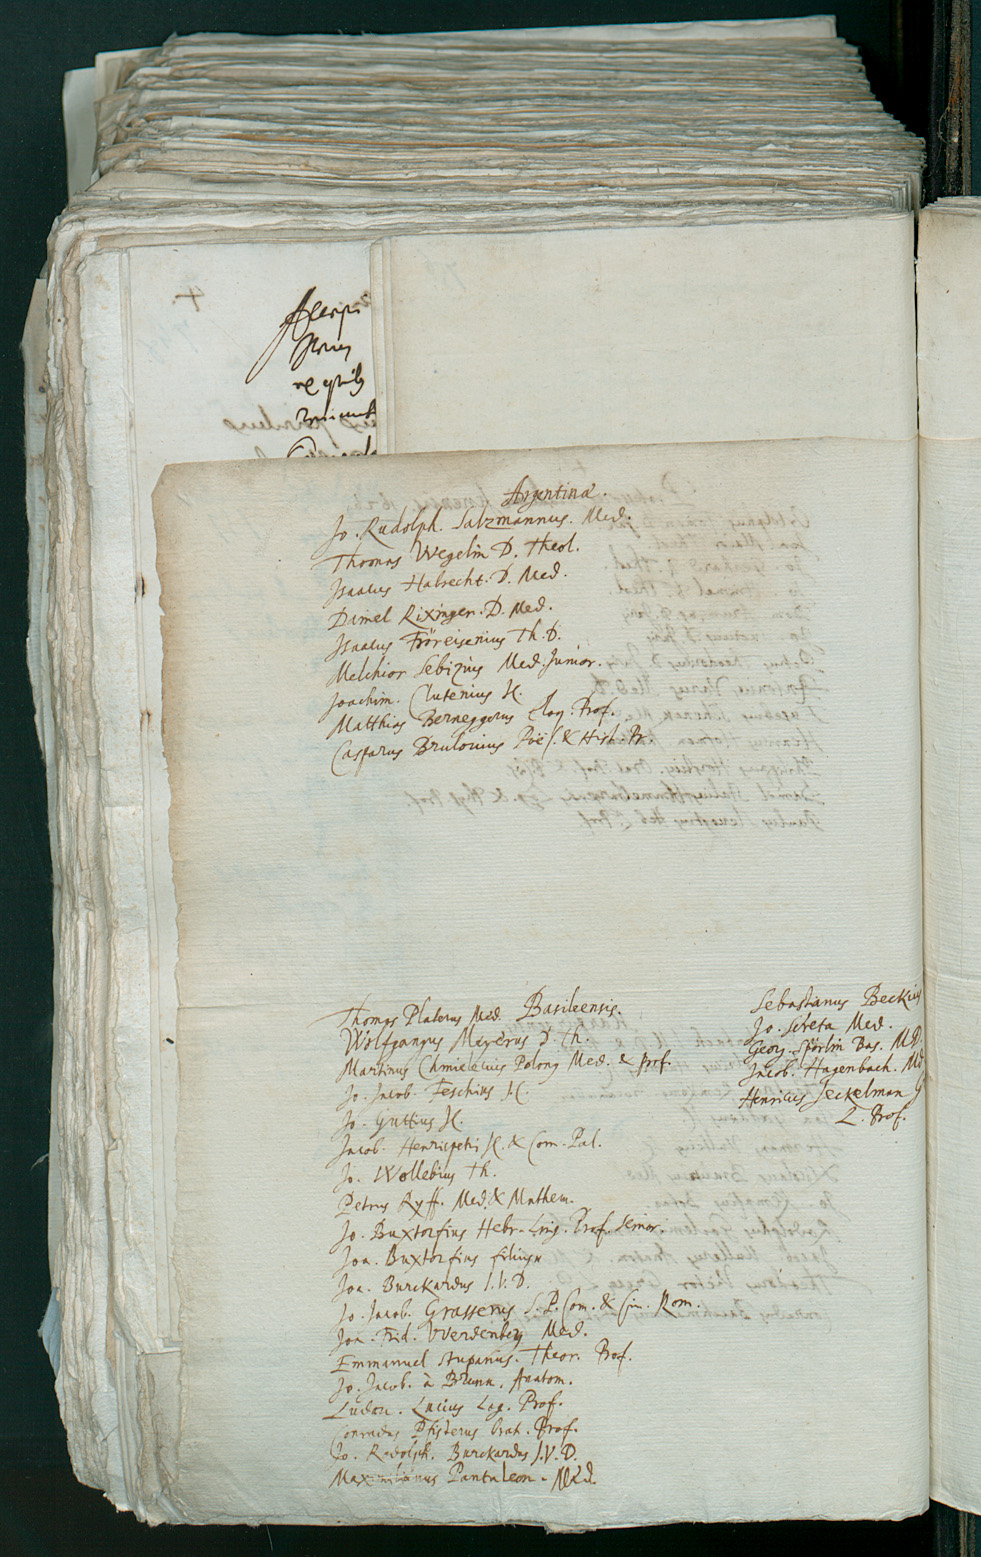 4
Argentinæ.
Jo. Rudolph. Salzmannus. Med.
Thomas Wegelin D. Theol.
Isaacus Habrecht. D. Med.
Daniel Rixinger. D. Med.
Isaacus Fröreisenius Th. D.
Melchior Sebizius Med. Junior.
Joachim. Clutenius JC.
Matthias Berneggerus Eloq. Prof.
Casparus Brulovius Poës. & Hist. Pr.
Basileensis.
Thomas Platerus Med.
Wolfgangus Meyerus D. Th.
Martinus Chmielecius Polong Med. & Prof.
Jo. Jacob. Feschius JC.
Jo. Guttius JC.
Jacob. Henricpetri JC. & Com. Pal.
Jo. Wollebius Th.
Petrus Ryff. Med. & Mathem.
Jo. Buxtorfius Hebr. Ling. Prof. Senior.
Joa. Buxtorfius filius
Joa. Burckardus J.V.D.
Jo. Jacob. Grasserus S. P. Com. & Civ. Rom.
Joa. Frid. Werdenberg Med.
Emmanuel Stupanus. Theor. Prof.
Jo. Jacob. à Brunn. Anatom.
Ludov. Lucius Log. Prof.
Conradus Pfisterus Orat. Prof.
Jo. Rodolph. Burckardus J.V.D.
Maximilianus Pantaleon. Med.
Sebastianus Beckius
Jo. Med.
Georg. Spörlin Bas. M.D.
Jacob. Hagenbach. Md
Henricus Jeckelman G
L. Prof.